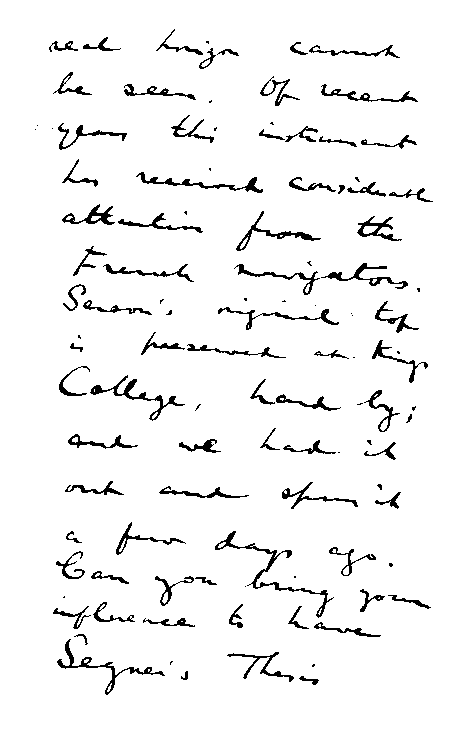 real horizon cannot
be seen. Of recent
years this instrument
has received considerable
attention from the
French navigators.
Serson's original top
is preserved at Kings
College, hard by;
and we had it
out and spun it
a few days ago.
Can you bring your
influence to have
Segner's Thesis